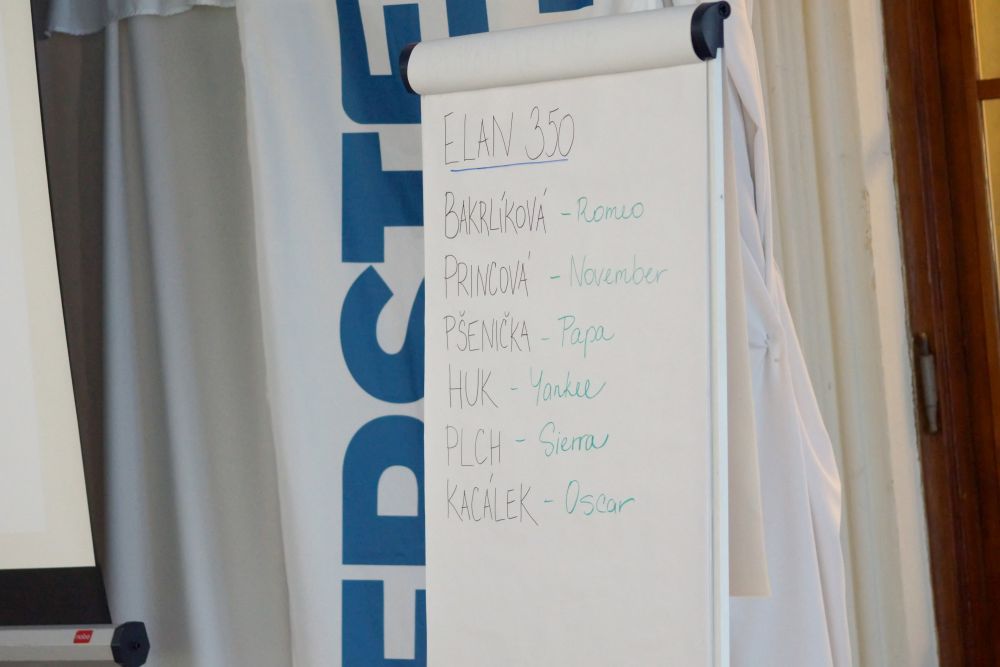 ELAN 350
BAKRLÍKOVÁ - Romeo
PRINCOVÁ - November
PŠENIČKA - Papa
HUK - Yankee
PLCH - Sierra
KACÁLEK - Oscar
nobo